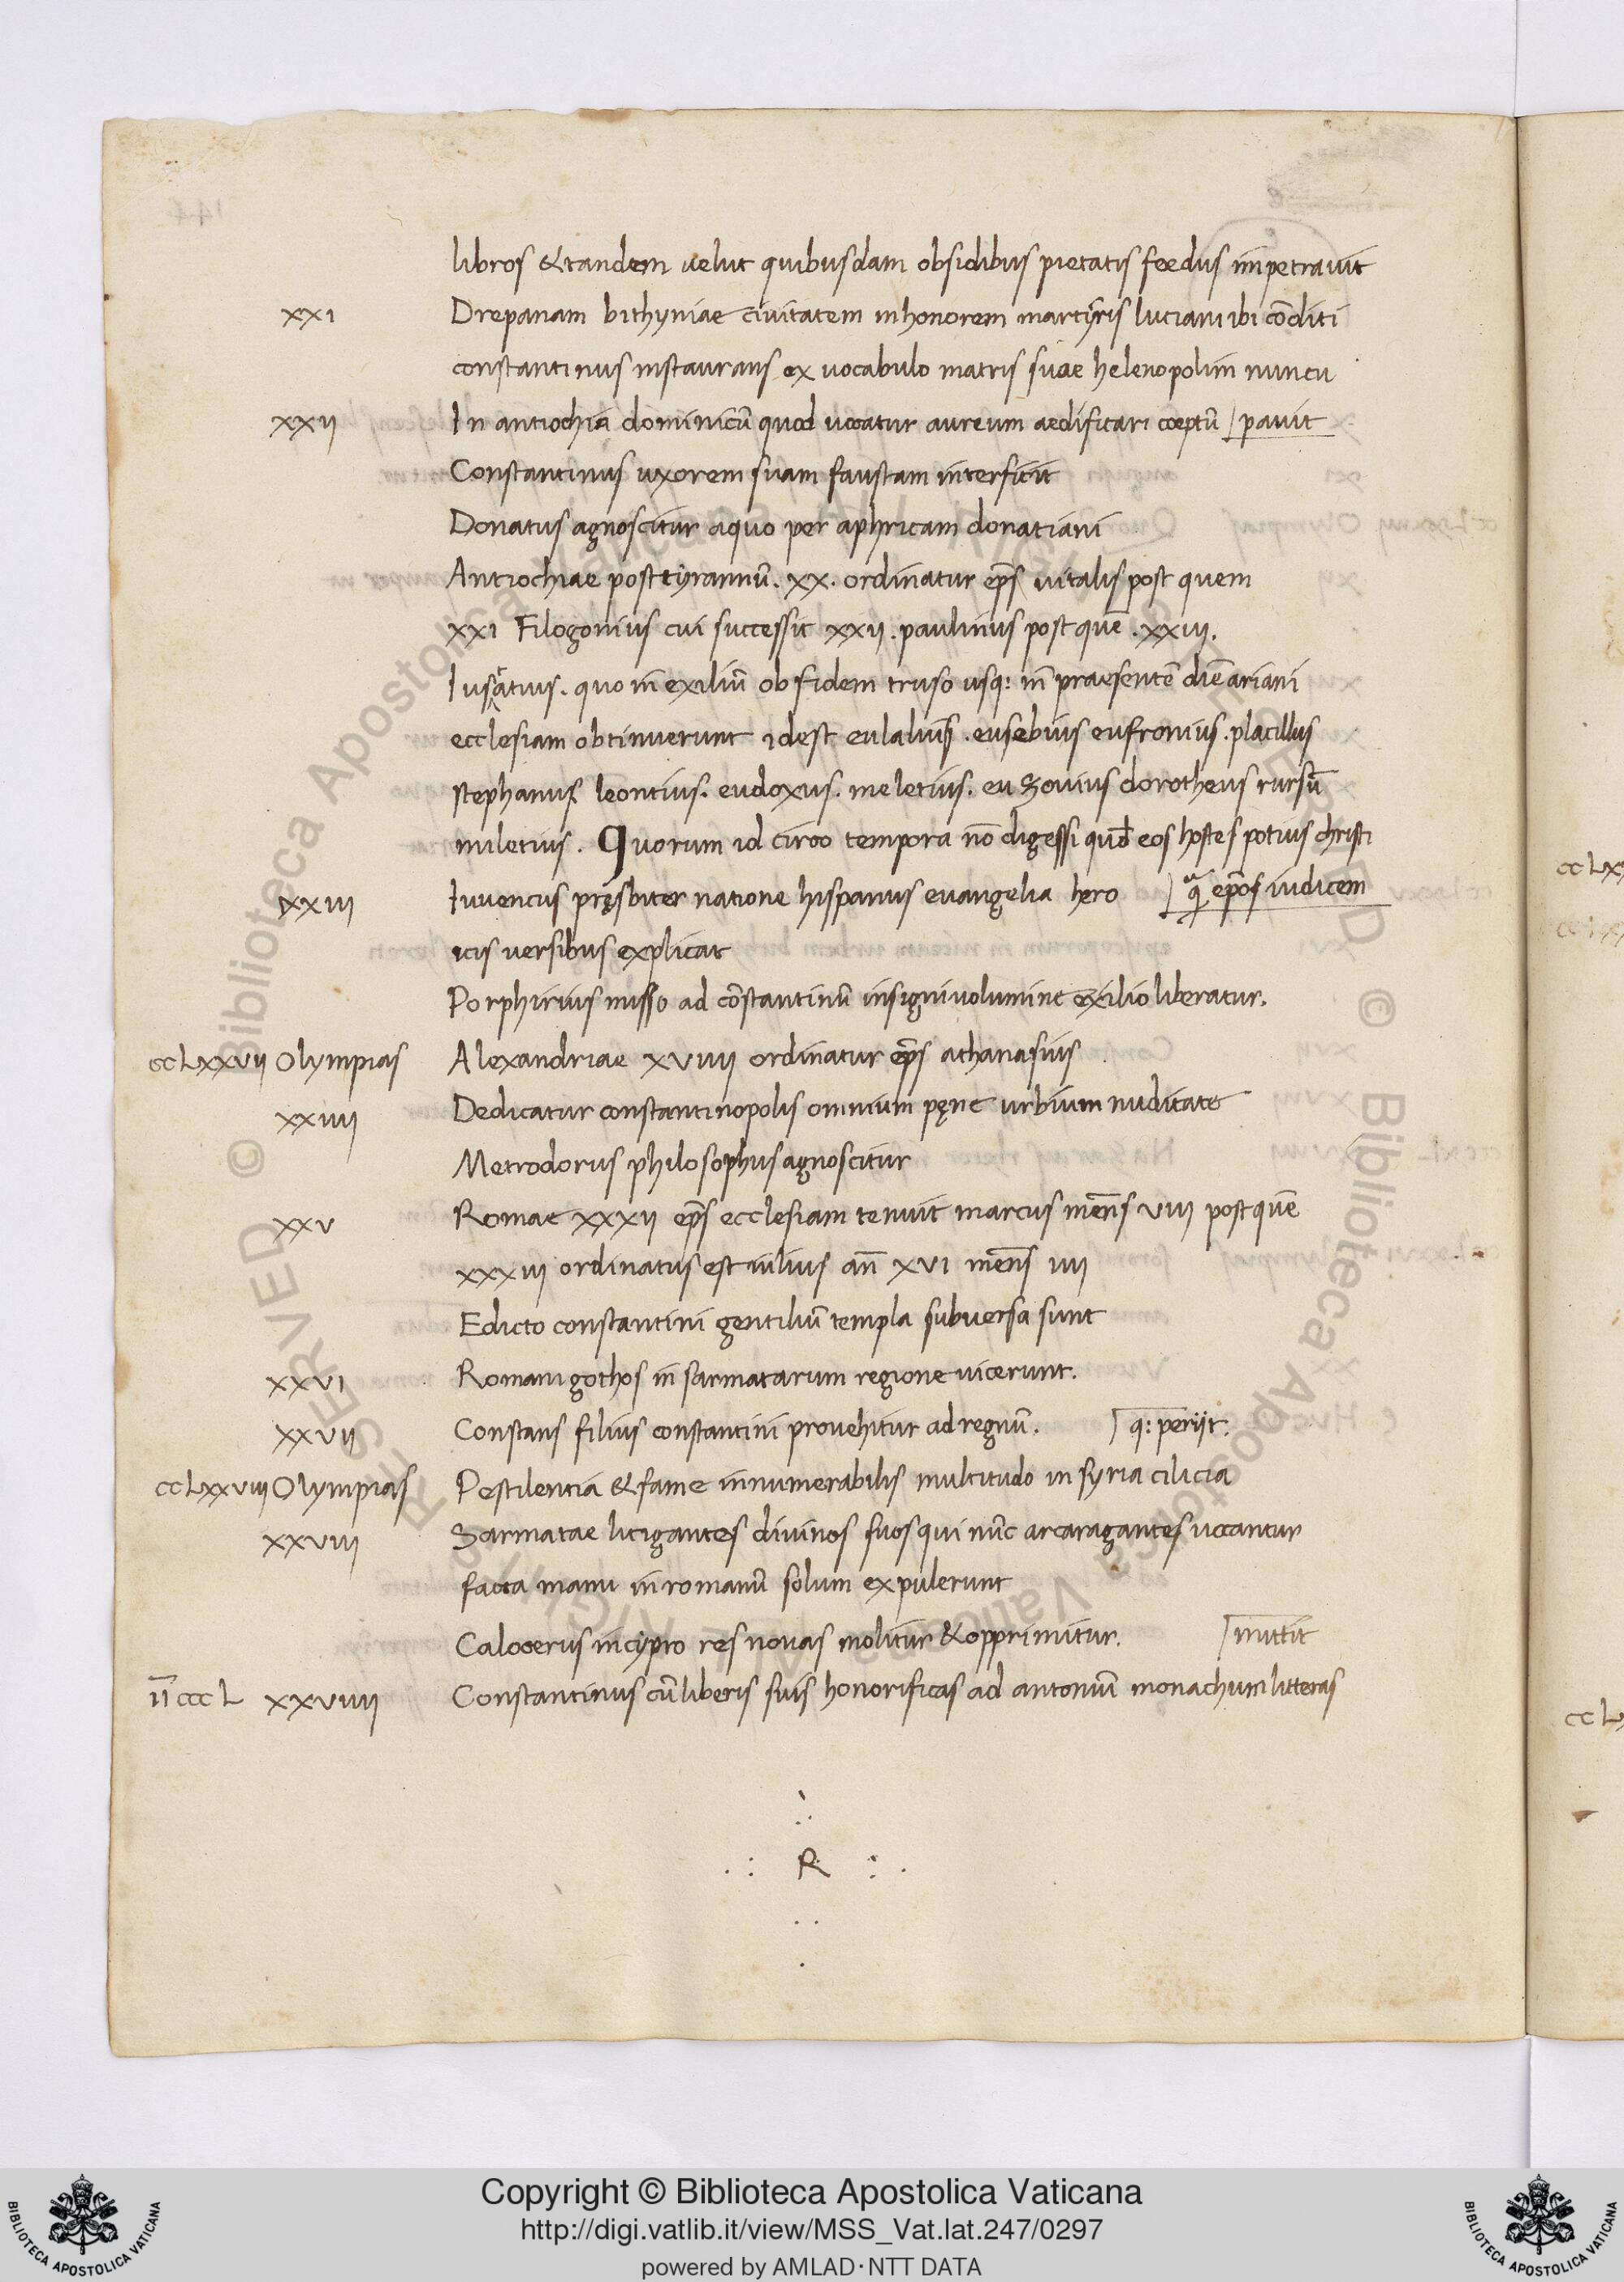 libros & tandem uelut quibusdam obsidibus pietatis foedus impetrauit
xxi Drepanam bithyniae ciuitatem in honorem martyris luciani ibi cōditi
constantinus instaurans ex uocabulo matris suae helenopolim nuncu
xxii In antiochia dominicū quod uocatur aureum aedificari coeptū | pauit
Constantinus uxorem suam faustam interficit
Donatus agnoscitur a quo per aphricam donatiani
Antiochiae post tyrannū . xx . ordinatur ep̄s uitalis post quem
xxi Filogonius cui successit xxii . paulinus post quē . xxiii .
Iusatius . quo in exiliū ob fidem truso usq: in praesentē diē ariani
ecclesiam obtinuerunt idest eulalius . eusebius eufronius . placillus
stephanus leontius . eudoxus . meletius . euzoius dorotheus rursū
miletius . Quorum idcirco tempora nō digessi quod eos hostes potius christi
xxiii Iuuencus pręsbiter natione hispanus euangelia hero | quā ep̄os iudicem
icis uersibus explicat
Porphirius misso ad cōstantinū insigni uolumine exilio liberatur .
cclxxvii Olympias Alexandriae xviiii ordinatur ep̄s athanasius
xxiiii Dedicatur constantinopolis omnium pęne urbium nuditate
Metrodorus philosophus agnoscitur
xxv Romae xxxii ep̄s ecclesiam tenuit marcus mens̄ viii post quē
xxxiii ordinatus est iulius an̄ xvi mens̄ iiii
Edicto constantini gentiliū templa subuersa sunt
xxvi Romani gothos in sarmatarum regione uicerunt .
xxvii Constans filius constantini prouehitur ad regnū . | q: periit .
cclxxviii Olympias Pestilentia & fame innumerabilis multitudo in syria cilicia
xxviii Sarmatae litigantes diuinos suos qui nūc arcaragantes uocantur
facta manu in romanū solum expulerunt
Calocerus in cypro res nouas molitur & opprimitur . | mittit
īī cccl xxviiii Constantinus cū liberis suis honorificas ad antonium monachum litteras
. : R : .
Copyright © Biblioteca Apostolica Vaticana
http://digi.vatlib.it/view/MSS_Vat.lat.247/0297
powered by AMLAD·NTT DATA
BIBLIOTECA APOSTOLICA VATICANA
BIBLIOTECA APOSTOLICA VATICANA